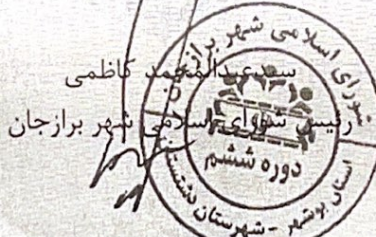 سیدعبدالمحمد کاظمی
رئیس شورای اسلامی شهر برازجان
شورای اسلامی شهر برازجان
دوره ششم
استان بوشهر - شهرستان دشتستان